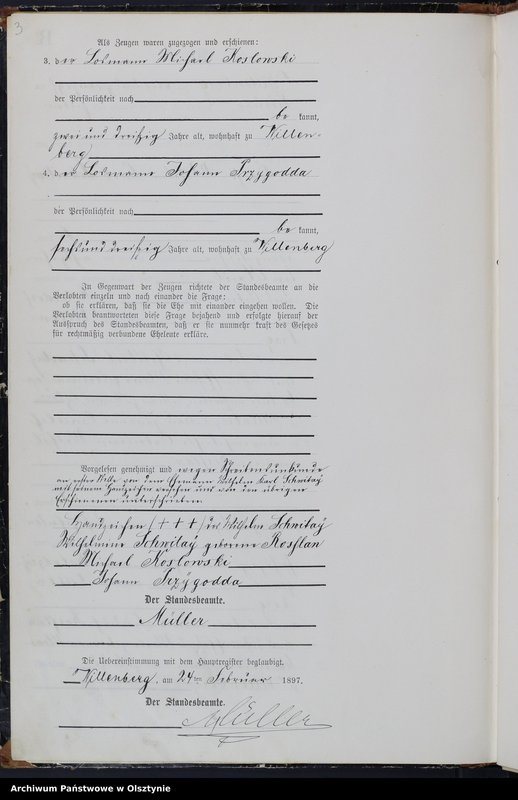 3
Als Zeugen waren zugezogen und erschienen:
3. der Losmann Michael Koslowski
der Persönlichkeit nach
be kannt,
zwei und dreißig Jahre alt, wohnhaft zu Willen-
berg
4. der Losmann Johann Przygodda
der Persönlichkeit nach
be kannt,
sechsunddreißig Jahre alt, wohnhaft zu Willenberg
In Gegenwart der Zeugen richtete der Standesbeamte an die
Verlobten einzeln und nach einander die Frage:
ob sie erklären, daß sie die Ehe mit einander eingehen wollen. Die
Verlobten beantworteten diese Frage bejahend und erfolgte hierauf der
Ausspruch des Standesbeamten, daß er sie nunmehr kraft des Gesetzes
für rechtmäßig verbundene Eheleute erkläre.
Vorgelesen genehmigt und wegen Schreibensunkunde
an erster Stelle von dem Ehemann Wilhelm Karl Schwitay
mit seinem Handzeichen versehen und von den übrigen
Erschienenen unterschrieben.
Handzeichen (+ + +) des Wilhelm Schwitay
Wilhelmine Schwitay geborene
Michael Koslowski
Johann Przygodda
Der Standesbeamte.
Müller
Die Uebereinstimmung mit dem Hauptregister beglaubigt.
Willenberg, am 24ten Februar 1897.
Der Standesbeamte.
Müller
Archiwum Państwowe w Olsztynie